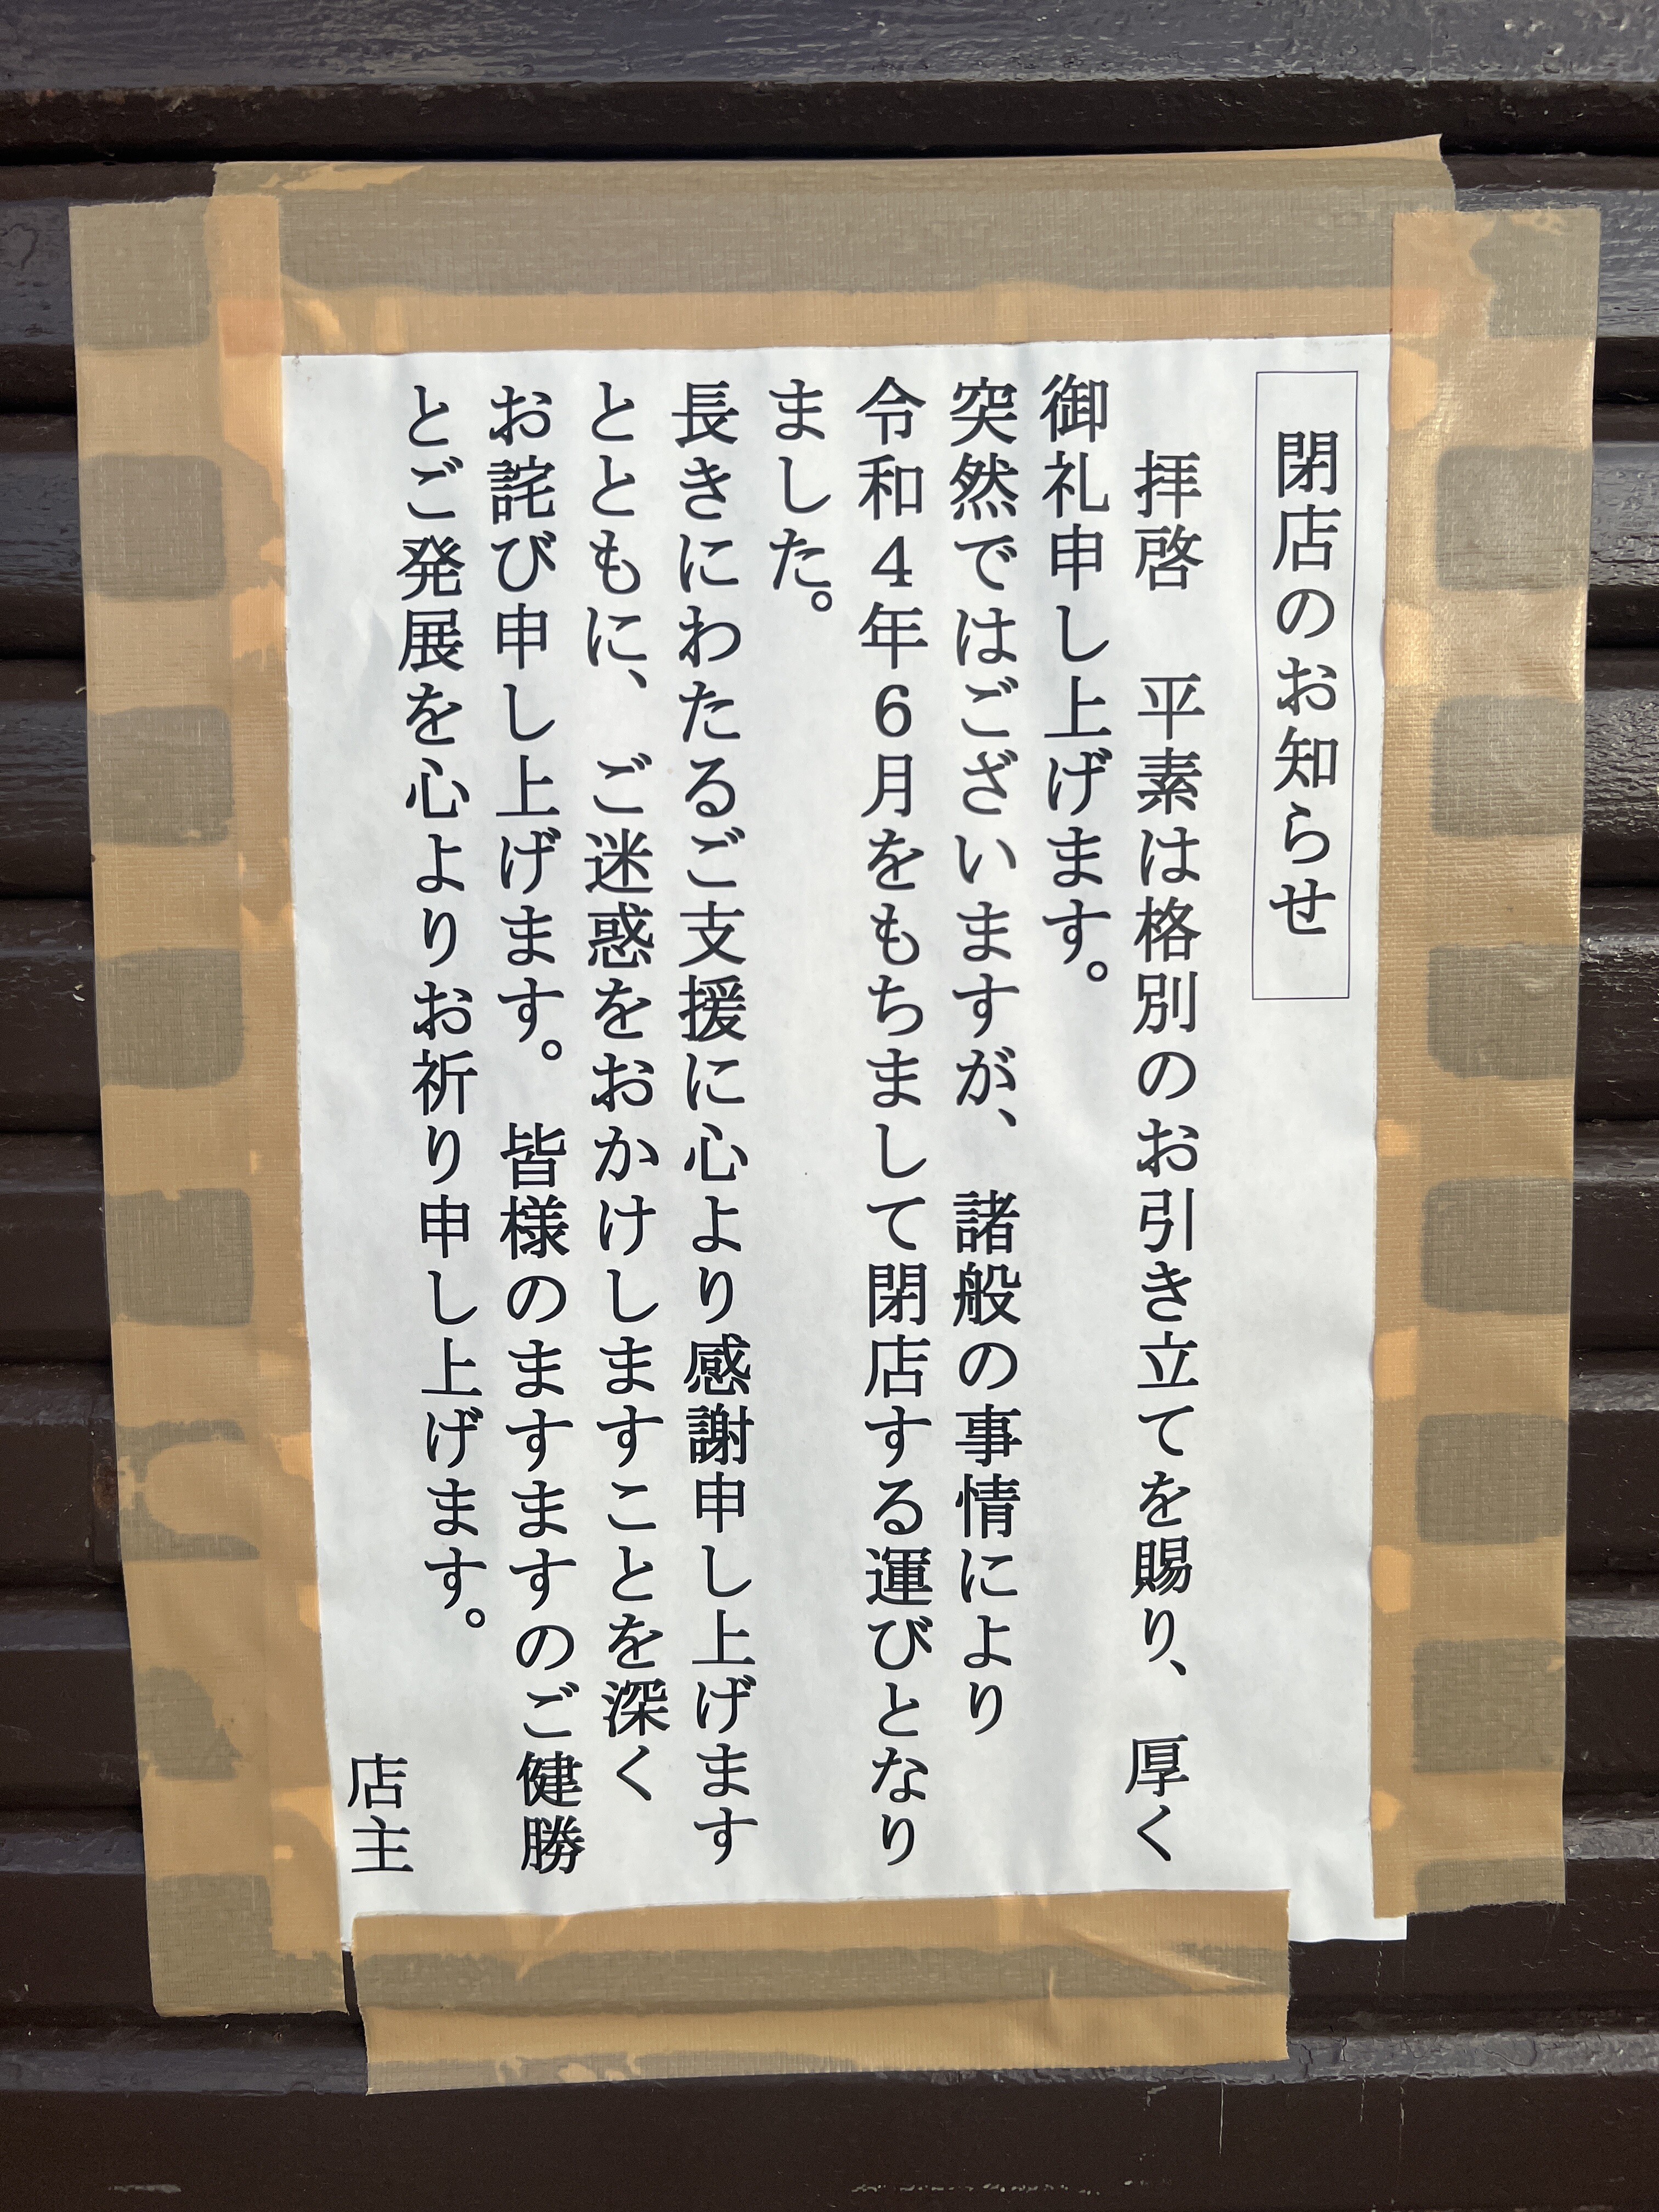 閉店のお知らせ
拝啓　平素は格別のお引き立てを賜り、厚く
御礼申し上げます。
突然ではございますが、諸般の事情により
令和４年６月をもちまして閉店する運びとなり
ました。
長きにわたるご支援に心より感謝申し上げます
とともに、ご迷惑をおかけしますことを深く
お詫び申し上げます。皆様のますますのご健勝
とご発展を心よりお祈り申し上げます。
店主